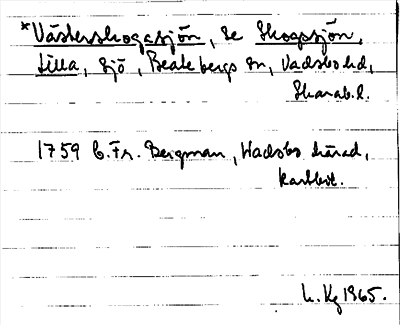 *Västerskogasjön, se Skogssjön,
Lilla, sjö, Beatebergs sn, Vadsbo hd,
Skarab. l.
1759 C. Fr. Bergman, Wadsbo härad,
kartbit.
L. Kg 1965.